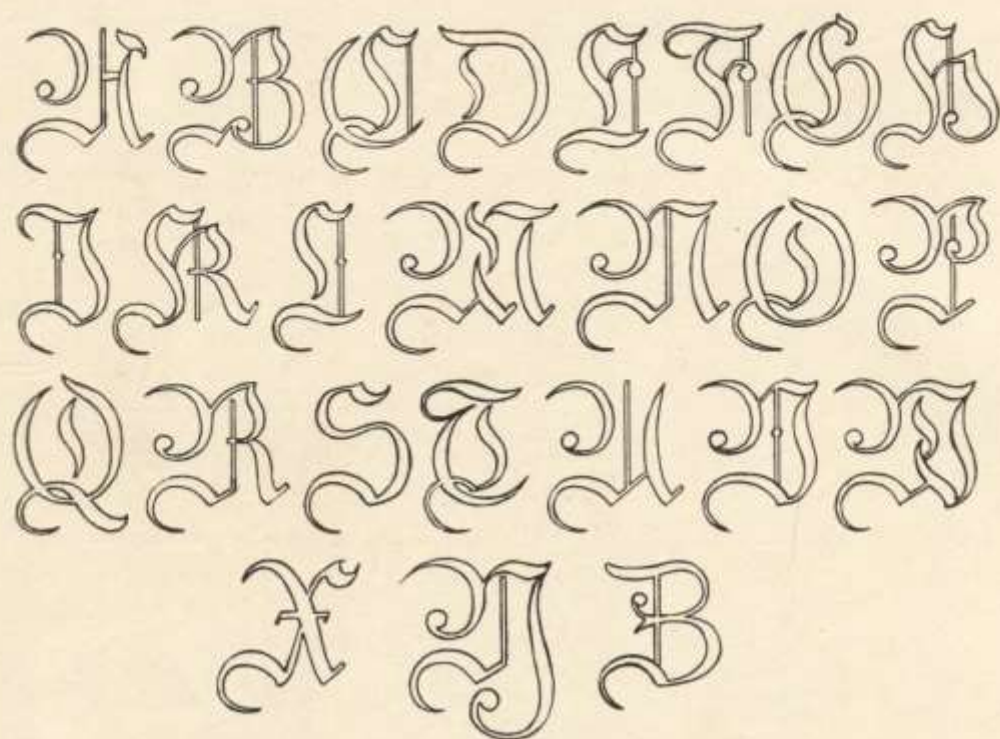 A B C D E F G H
I K L M N O P
Q R S T U V W
X Y Z